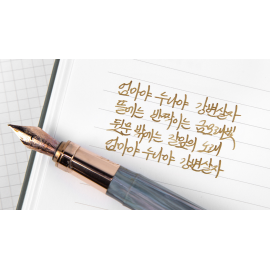 엄마야 누나야 강변살자
뜰에는 반짝이는 금모래빛
뒷문 밖에는 갈잎의 노래
엄마야 누나야 강변살자